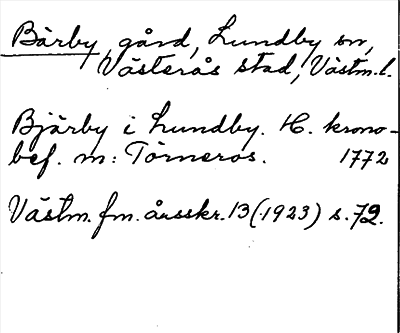 Bärby, gård, Lundby sn,
Västerås stad, Västm. l.
Bjärby i Lundby. H. krono-
bef. m: Törneros. 1772
Västm. fm. årsskr. 13 (1923) s. 72.